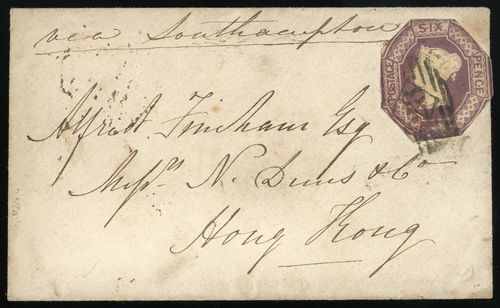 via Southampton
POSTAGE SIX PENCE
Alfred Esq
Messrs N. & Co
Hong Kong